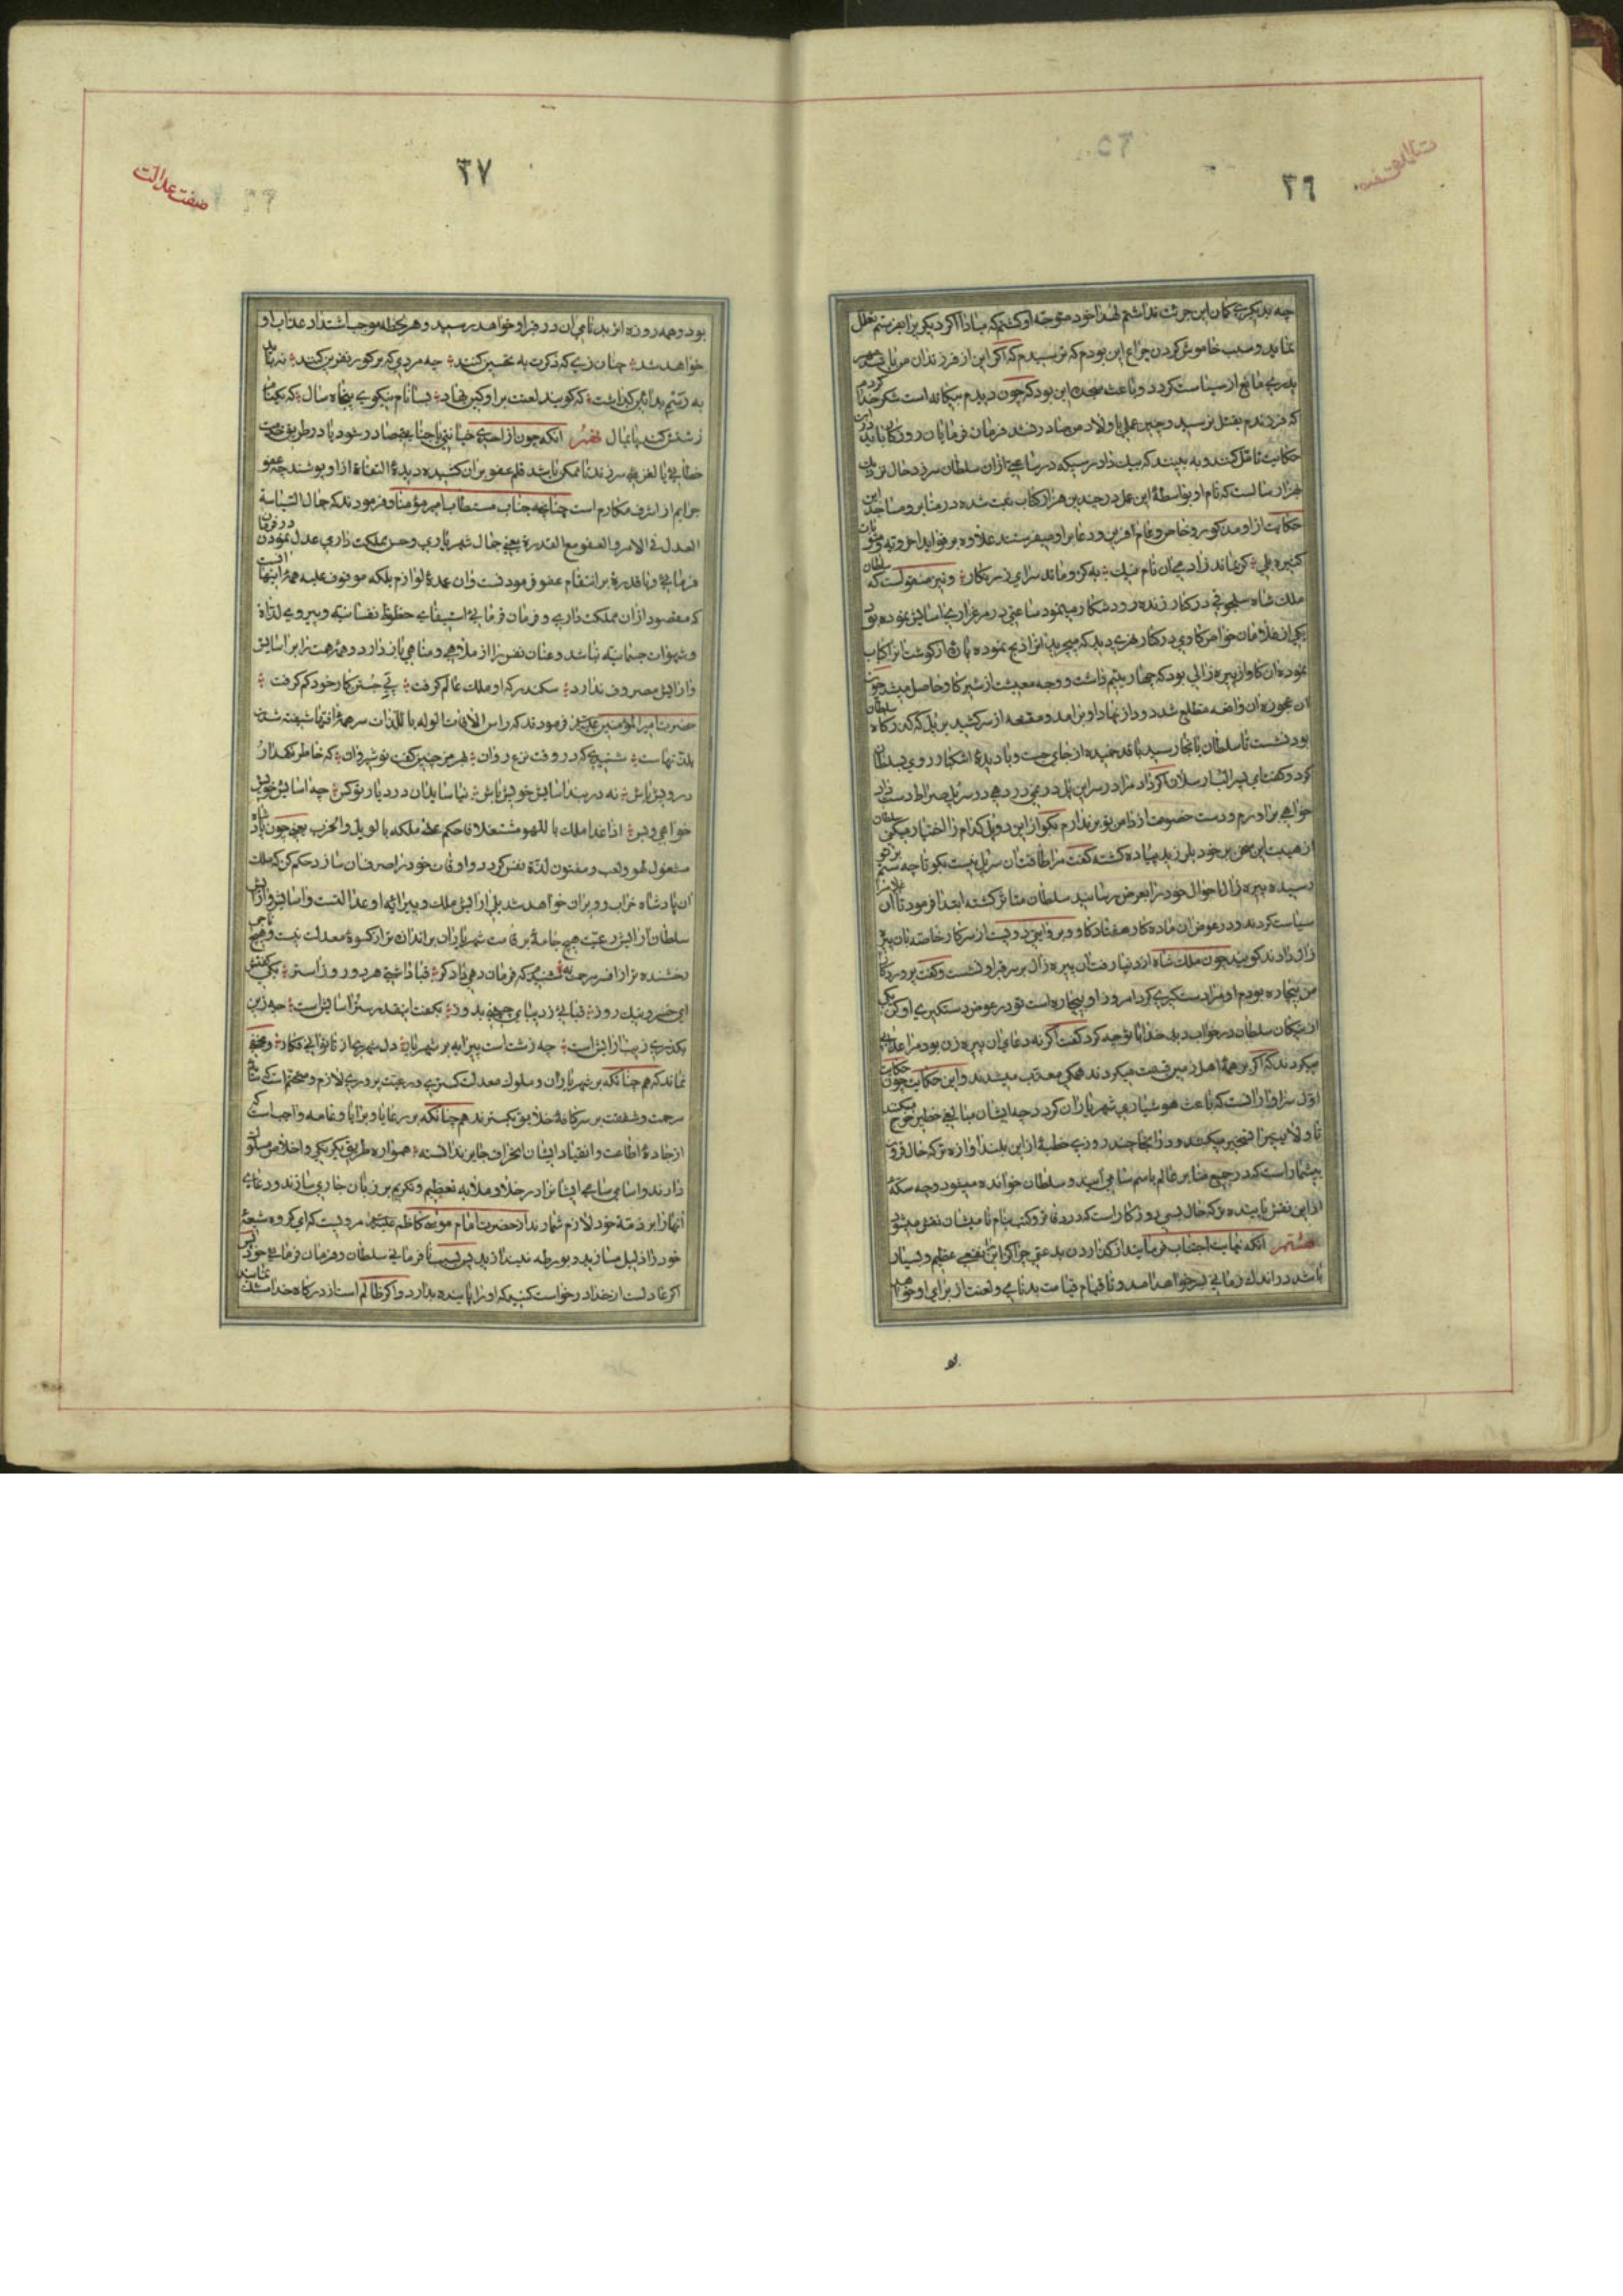 ٢٦
چه بدیگری کمان این جرئت نداشتم لهذا خود متوجه او کشتم که مبادا اکر دیکری را بفرستم تعلل
نماید و سبب خاموش کردن چراغ این بودم که ترسیدم که اکر این از فرزندان من باشد مهر
پدری مانع از سیاست کردد و باعث سجده این بود که چون دیدم بیکانه است شکر خدا کردم
که فرزندم بقتل نرسید و چنین عملی از اولاد من صادر نشد فرمان فرمایان روزکار باید در این
حکایت تامل کنند و به بینند که بیک دادرسی که در ساعتی از ان سلطان سر زد حال نزدیک
هزار سالست که نام او بواسطهٔ این عمل در چندین هزار کتاب ثبت شده در منابر و مساجد این
حکایت از او مذکور و خاص و عام افرین و دعا بر او میفرستند علاوه بر فواید اخرویه و مثوبات
کثیره بلی کر بماند زادمی ان نام نیک به کزو ماند سرای زرنکار و نیز منقولست که سلطان
ملک شاه سلجوقی در کنار زنده رود شکار مینمود ساعتی در مرغزاری اسایش نموده بود
یکی از غلامان خواص کاوی در کنار نهری دید که میچرید انرا ذبح نموده پارهٔ از کوشت انرا کباب
نموده ان کاو از پیره زالی بود که چهار یتیم داشت و وجه معیشت از شیر کاو حاصل میشد چون
ان عجوزه از ان واقعه مطلع شد دود از نهاد او برامد و مقنعه از سر کشید بر پل که کذرکاه سلطان
بود نشست تا سلطان بانجا رسید با قد خمیده از جای جست و با دیدهٔ اشکبار روی بسلطان
کرد و کفت ای پسر الب ارسلان اکر داد مرا در سر این پل ندهی در سر پل صراط دست داد
خواهی براورم و دست خصومت از دامن تو بر ندارم بکو از این دو پل کدام را اختیار میکنی سلطان
از هیبت این سخن بر خود بلرزید پیاده کشته کفت مرا طاقت ان سر پل نیست بکو تا چه ستم بر تو
رسیده پیره زال احوال خود را بعرض رسانید سلطان متاثر کشته ابتدا فرمود تا ان غلام را
سیاست کردند و در عوض ان ماده کاو هفتاد کاو و بروایتی دویست از سرکار خاصه بان پیره
زال دادند کویند چون ملک شاه از دنیا رفت ان پیره زال بر سر قبر او نشست و کفت پروردکارا
من بیچاره بودم او مرا دستکیری کرد امروز او بیچاره است تو در عوض دستکیری او کن یکی
از نیکان سلطان در خواب دید خدا با تو چه کرد کفت اکر نه دعای ان پیره زن بود مرا عذابی
میکردند که اکر بر همهٔ اهل زمین قسمت میکردند همکی معذب میشدند و این حکایت چون حکایت
اول سزاوار انست که باعث هوشیاری شهریاران کردد چه ایشان بنایی خطیر خرج میکنند
از این نقش پاینده تر که حال بسی روزکار است که در دفاتر و کتب بنام نامیشان نقش میشود
هشتم انکه نهایت اجتناب فرمایند از کذاردن بدعتی چرا که اکر این نفعی عظیم و بسیار
باشد در اندک زمانی بسر خواهد امد و تا قیام قیامت بدنامی و لعنت از برای او خواهد
صفت عدالت
٢٧
بود و همه روزه اثر بدنامی ان در قبر او خواهد رسید و هر لحظه موجب اشتداد عذاب او
خواهد شد چنان زی که ذکرت به تحسین کنند چه مردی که بر کور نفرین کنند نه باید
به رسم بد ائین کذاشت که کویند لعنت بر او کین نهاد بسا نام نیکوی پنجاه سال که یک نام
زشتش کند پایمال نهم انکه چون از احدی خیانتی یا جنایتی صادر شود یا در طریق خدمت
خطائی یا لغزشی سر زند تا ممکن باشد قلم عفو بر ان کشیده دیدهٔ التفات از او پوشند چه عفو
جرایم از اشرف مکارم است چنانچه جناب مستطاب امیر مؤمنان فرمودند که جمال السیاسة
العدل فی الامر و العفو مع القدرة یعنی جمال شهریاری و حسن مملکت داری عدل نمودن در فرمان
فرمائی و با قدرة بر انتقام عفو فرمودنست و ان عمدهٔ لوازم بلکه موقوف علیه همهٔ اینها است
که مقصود از ان مملکت داری و فرمان فرمائی استیفای حظوظ نفسانیه و پیروی لذات
و شهوات جسمانیه نباشد و عنان نفس را از ملاهی و مناهی باز دارد و همهٔ همت را بر اسایش
و ارایش مصروف ندارد سکندر که او ملک عالم کرفت پی جستن کار خود کم کرفت
حضرت امیر المؤمنین علیه السلام فرمودند که راس الافات الوله باللذات سر همهٔ افتها شیفته شدن
بلذتهاست شنیدم که در وقت نزع روان به هرمز چنین کفت نوشیروان که خاطر نکهدار
درویش باش نه در بند اسایش خویش باش نیاساید اندر دیار تو کس چو اسایش خویش
خواهی و بس اذا غدا ملک باللهو مشتغلا فاحکم علی ملکه بالویل و الحرب یعنی چون پادشاه
مشغول لهو و لعب و مفتون لذة نفس کردد و اوقات خود را صرف ان سازد حکم کن که ملک
ان پادشاه خراب و ویران خواهد شد بلی ارایش ملک و پیرایهٔ او عدالتست و اسایش و ارامش
سلطان ارایش رعیت هیچ جامهٔ بر قامت شهریاران برازنده تر از کسوهٔ معدلت نیست و هیچ تاجی
رخشنده تر از افسر مرحمت نه شنیدم که فرمان دهی دادکر قبا داشتی هر دو رو استر یکی کفتش
ای خسرو نیک روز قبائی ز دیبای چینی بدوز بکفت اینقدر ستر اسایش است چه زین
بکذری زیب ارایش است چه زشت است پیرایه بر شهریار دل شهری از ناتوانی فکار و مخفی
نماند که هم چنانکه بر شهریاران و ملوک معدلت کستری و رعیت پروری لازم و متحتم است که سایهٔ
مرحمت و شفقت بر سر کافهٔ خلایق بکسترند هم چنانکه بر رعایا و برایا و عامه واجب است که
از جادهٔ اطاعت و انقیاد ایشان انحراف جایز ندانسته همواره طریق یکرنکی و اخلاص مسلوک
دارند و اسامی سامی ایشانرا در خلا و ملا به تعظیم و تکریم بر زبان جاری سازند و دعای
انها را بر ذمهٔ خود لازم شمارند از حضرت امام موسی کاظم علیه السلام مرویست که ای کروه شیعه
خود را ذلیل مسازید و بورطه نیندازید بسبب نافرمانی سلطان و فرمان فرمائی خود پس
اکر عادلست از خدا درخواست کنید که او را پاینده بدارد و اکر ظالم است از درکاه خدا مسئلت نمایید